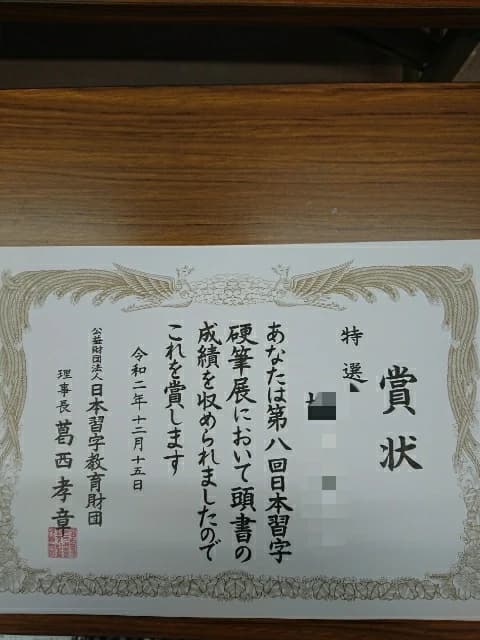 賞状
特選
あなたは第八回日本習字
硬筆展において頭書の
成績を収められましたので
これを賞します
令和二年十二月十五日
公益財団法人日本習字教育財団
理事長 葛西孝章